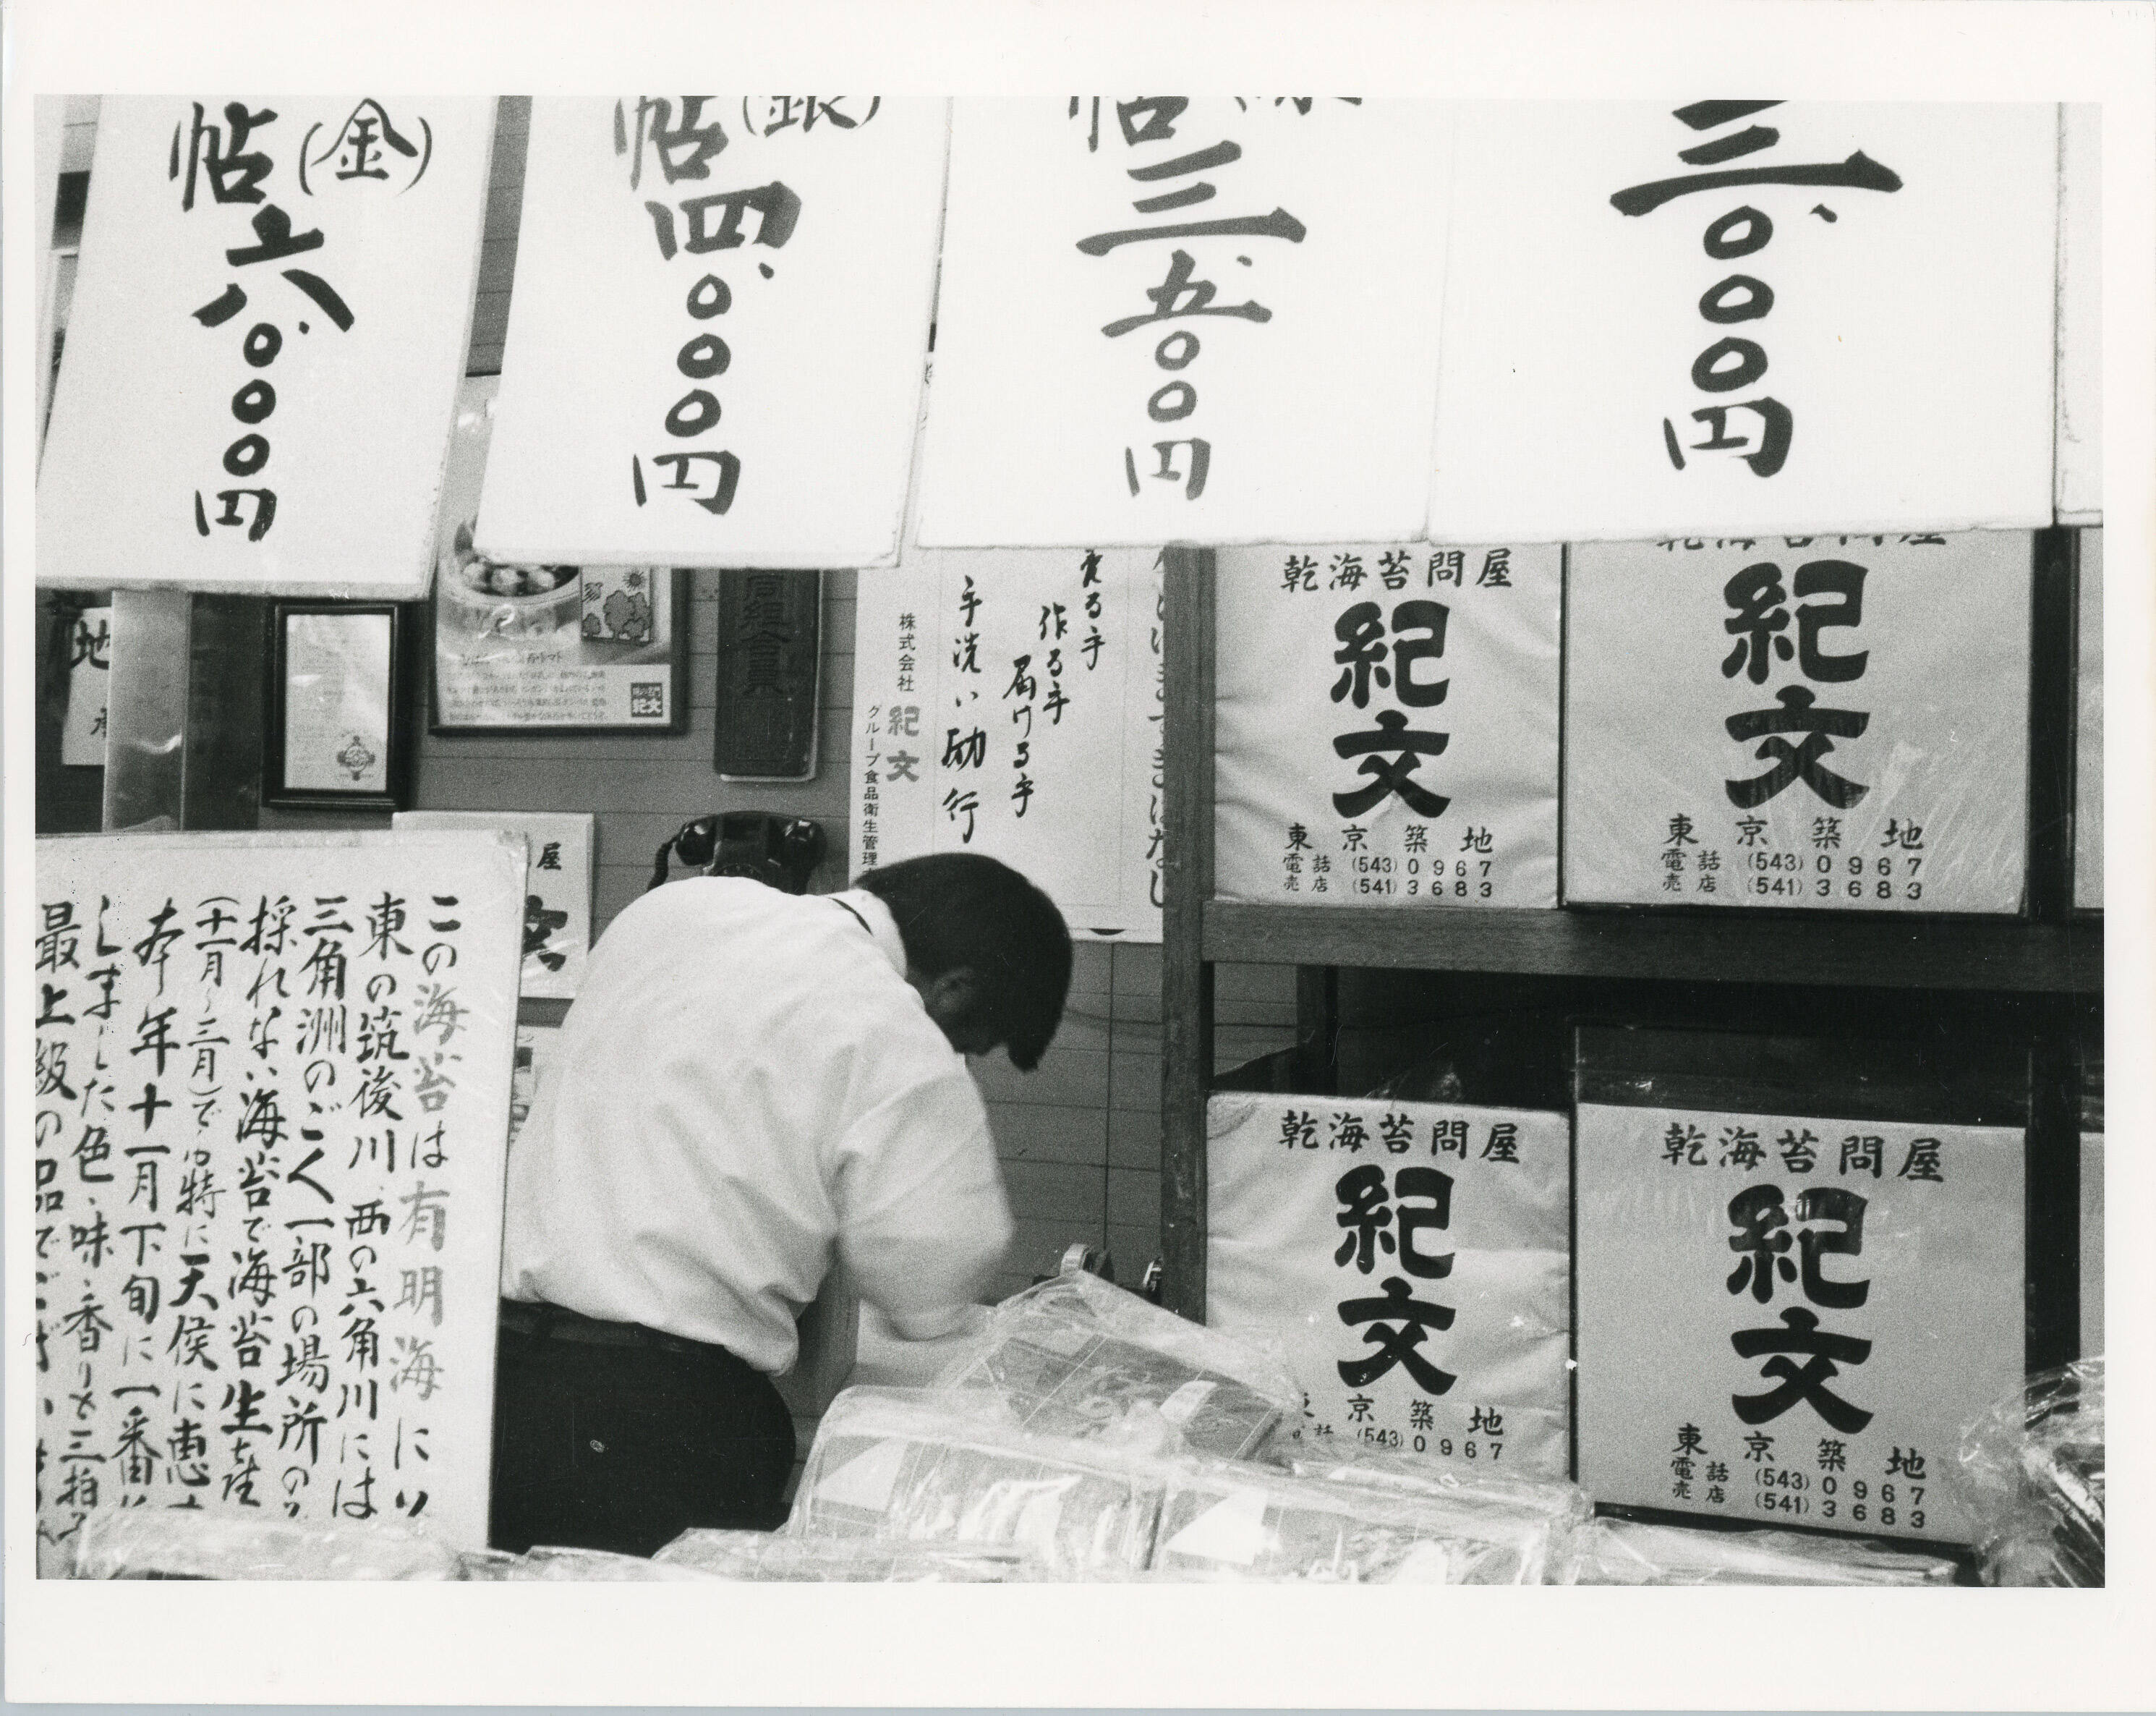 (金)
帖六、〇〇〇円
(銀)
帖四、〇〇〇円
帖三、五〇〇円
三、〇〇〇円
組合員
売る手
作る手
届ける手
手洗い励行
株式会社 紀文
グループ食品衛生管理
紀文
地
屋
文
乾海苔問屋
紀文
東京築地
電話 (543) 0967
売店 (541) 3683
乾海苔問屋
紀文
東京築地
電話 (543) 0967
売店 (541) 3683
乾海苔問屋
紀文
京築地
(543) 0967
乾海苔問屋
紀文
東京築地
電話 (543) 0967
売店 (541) 3683
この海苔は有明海に
東の筑後川、西の六角川には
三角洲のごく一部の場所の
採れない海苔で海苔生産
(十一月〜三月)で特に天侯に恵
本年十一月下旬に一番
しました色、味、香りと三拍
最上級の品でござい